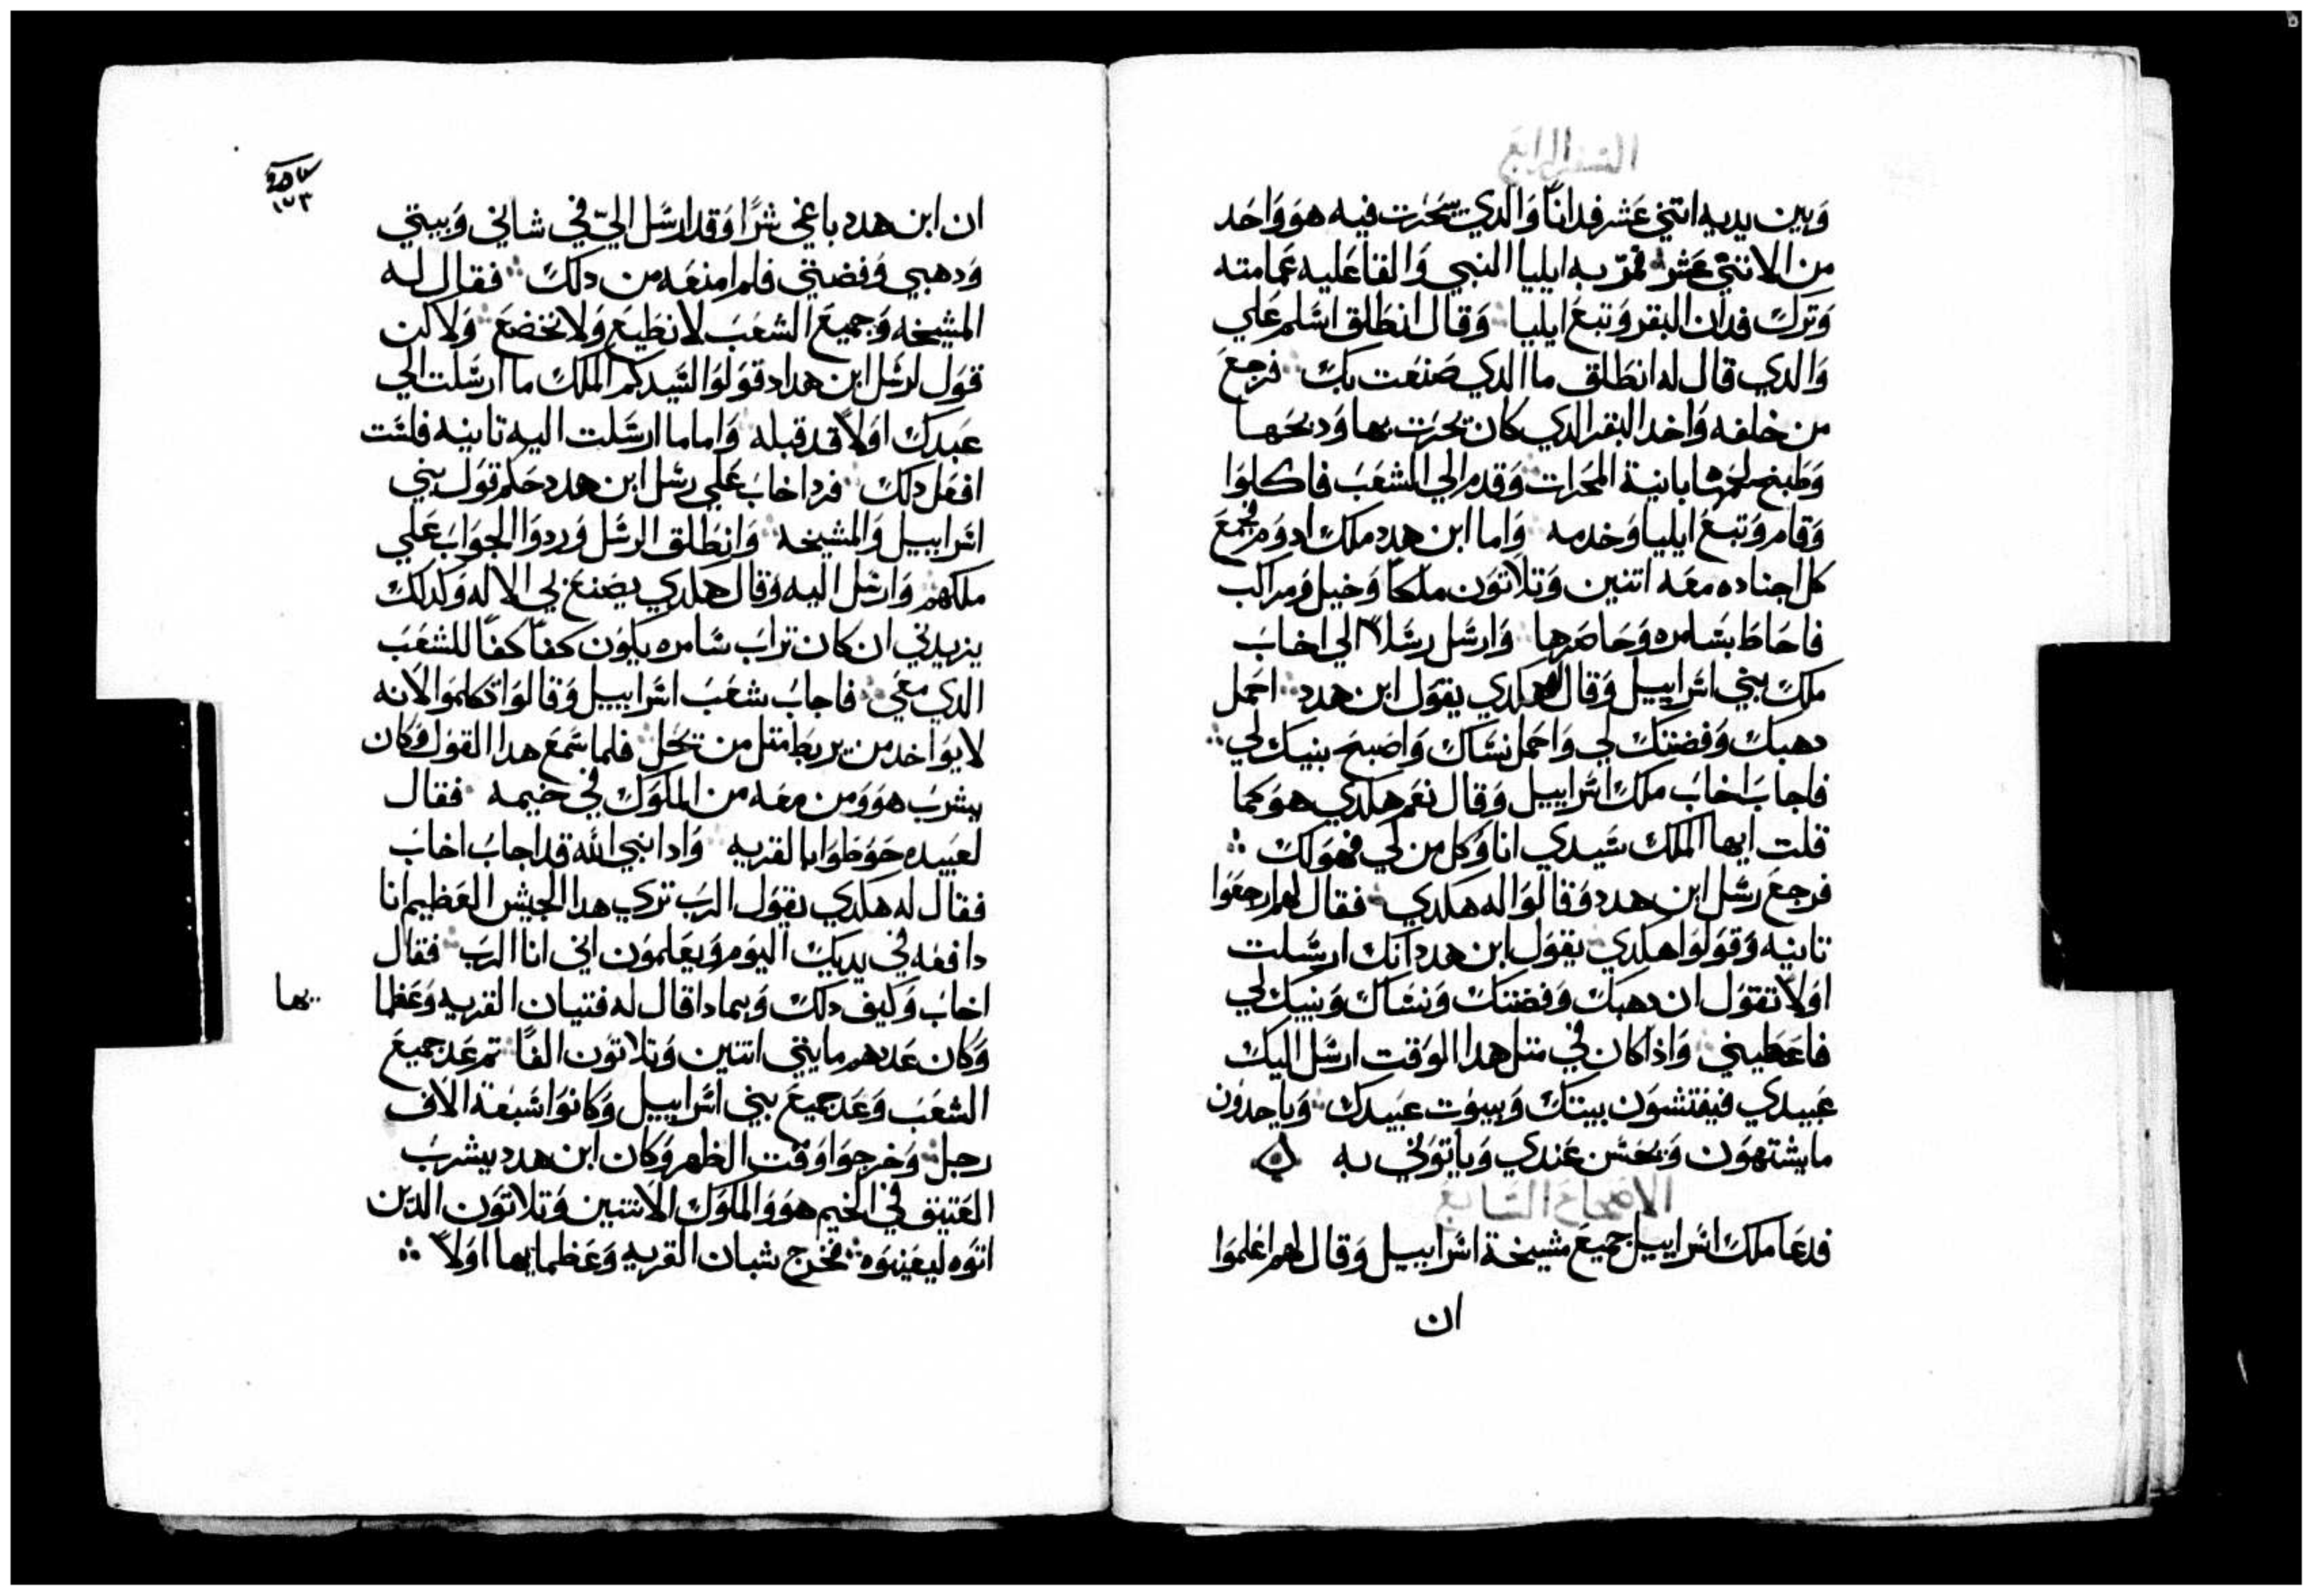 السفر الرابع
وَبين يديه اتنيَ عَشر فدانًا وَالدي يَحَرت فيه هوَ وَاحَد
من الاتنيَ عَشر فمرّ به ايليا النبي وَالقا عَليه عَمامته
وَترك فدان البقر وَتبعَ ايليا وَقال انطَلق اسَلم عَلي
وَالدي قال له انطَلق ما الدي صَنعَت بك فرجعَ
من خلفه وَاخد البقر الدي كان يحَرَت بها وَدبحَها
وَطَبخ لحَمها بانية المحَرات وَقدم الي الشعَبَ فاكلوَا
وَقام وَتبعَ ايليا وَخدمه وَاما ابن هدد ملك ادوَم فجمعَ
كل اجناده معَه اتنين وَتلاتوَن ملكاً وَخيل وَمراكب
فاحَاطَ بسَامره وَحَاصَرها وَارسَل رسَلاً الي اخابَ
ملك بني اسَراييل وَقال هكدي يقوَل ابن هدد احَمل
دهبك وَفضتك لي وَاحَمل نسَاك وَاصَبحَ بنيك لي
فاجابَ اخابَ ملك اسَراييل وَقال نعَم هكدي هوَ كما
قلت ايها الملك سَيدي انا وَكل من لي فهوَ لك
فرجعَ رسَل ابن هدد وَقالوَا له هكدي فقال لهم ارجعَوا
تانيه وَقوَلوَا هكدي يقوَل ابن هدد انك ارسَلت
اوَلاً تقوَل ان دهبك وَفضتك وَنسَاك وَبنيك لي
فاعَطيني وَاذا كان في متل هدا الوَقت ارسَل اليك
عَبيدي فيفتشوَن بيتك وَبيوَت عبَيدك وَياخدوَن
ما يشتهوَن وَيحَسَن عَندي وَياتوَني به
الاصحاح السَابعَ
فدعَا ملك اسَراييل جميعَ مشيخة اسَراييل وَقال لهم اعَلموَا
ان
١٧٣
ان ابن هدد باغي شرًا وَقد ارسَل اليّ في شاني وَبيتي
وَدهبي وَفضتي فلم امنعَه من دلك فقال له
المشيخه وَجميعَ الشعَبَ لا نطَيعَ وَلا نخضعَ وَلاكن
قوَل لرسَل ابن هداد قوَلوَا لسَيدكم الملك ما ارسَلت الي
عَبدك اوَلاً قد قبله وَاما ما ارسَلت اليه تانيه فلسَت
افعَل دلك فرد اخابَ عَلي رسَل ابن هدد حَكم قوَل بني
اسَراييل وَالمشيخه وَانطَلق الرسَل وَردوَا الجوَابَ عَلي
ملكهم وَارسَل اليه وَقال هكدي يصَنعَ بي الاله وَكدلك
يزيدني ان كان ترابَ سَامره يكوَن كفاً كفاً للشعَبَ
الدي معَي فاجابَ شعَبَ اسَراييل وَقالوَا تكلموَا لانه
لا يوَاخد من يربطَ متل من يحَل فلما سَمعَ هدا القوَل وَكان
يشربَ هوَ وَمن معَه من الملوَك في خيمه فقال
لعَبيده حَوَطَوَا بالقريه وَادا بنبي الله قد اجابَ اخابَ
فقال له هكدي يقوَل الربَ تري هدا الجيش العَظيم انا
دافعَه في يديك اليوَم وَيعَلموَن اني انا الربَ فقال
اخابَ وَكيف دلك وَبمادا قال له فتيان القريه وَعَظما
يها
وَكان عَددهم مايتي اتنين وَتلاتوَن الفاً تم عَد جميعَ
الشعَبَ وَعَد جميعَ بني اسَراييل وَكانوَا سَبعَة الاف
رجل وَخرجوَا وَقت الظهر وَكان ابن هدد يشربَ
العَتيق في الخيم هوَ وَالملوَك الاتنين وَتلاتوَن الدين
اتوَه ليعَينوَه فخرج شبان القريه وَعَظمايها اوَلاً